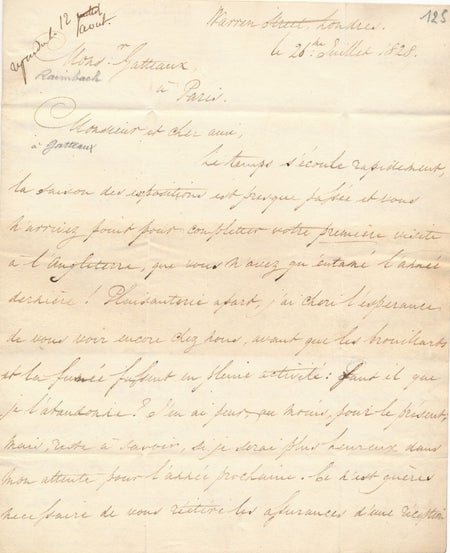 Warren Street, Londres.
125
répondu le 12
août
le 26me Juillet 1828.
Monsr Gatteaux
Raimbach
à Paris.
Monsieur et cher ami,
à Gatteaux
Le temps s'écoule rapidement,
la saison des expositions est presque passée et vous
n'arrivez point pour completter votre première visite
à l'Angleterre, que vous n'avez qu'entamé l'année
dernière! Plaisanterie apart, j'ai cheri l'espérance
de vous voir encore chez nous, avant que les brouillards
et la fumée fussent en pleine activité: faut il que
je l'abandonne? J'en ai peur au moins, pour le présent,
mais, reste à savoir, si je serai plus heureux dans
mon attente pour l'année prochaine. Ce n'est guères
necessaire de vous réitéré les assurances d'une réception